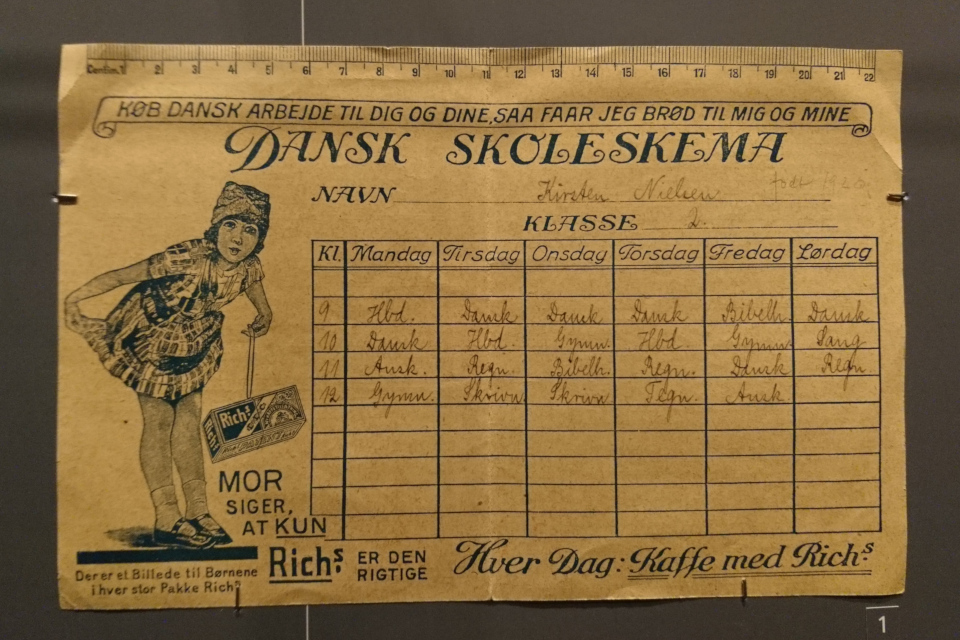 Centim. 1 2 3 4 5 6 7 8 9 10 11 12 13 14 15 16 17 18 19 20 21 22
KØB DANSK ARBEJDE TIL DIG OG DINE, SAA FAAR JEG BRØD TIL MIG OG MINE
DANSK SKOLESKEMA
NAVN Kirsten Nielsen født
KLASSE 2.
Kl. Mandag Tirsdag Onsdag Torsdag Fredag Lørdag
9 Hbd. Dansk Dansk Dansk Bibelh. Dansk
10 Dansk Hbd. Gymn. Hbd. Gymn. Sang
11 Ansk. Regn. Bibelh. Regn. Dansk Regn
12 Gymn. Skrivn. Skrivn Tegn. Ansk
Richs
Richs
MOR
SIGER,
AT KUN
Richs. ER DEN
RIGTIGE
Hver Dag: Kaffe med Richs
Der er et Billede til Børnene
i hver stor Pakke Richs
1